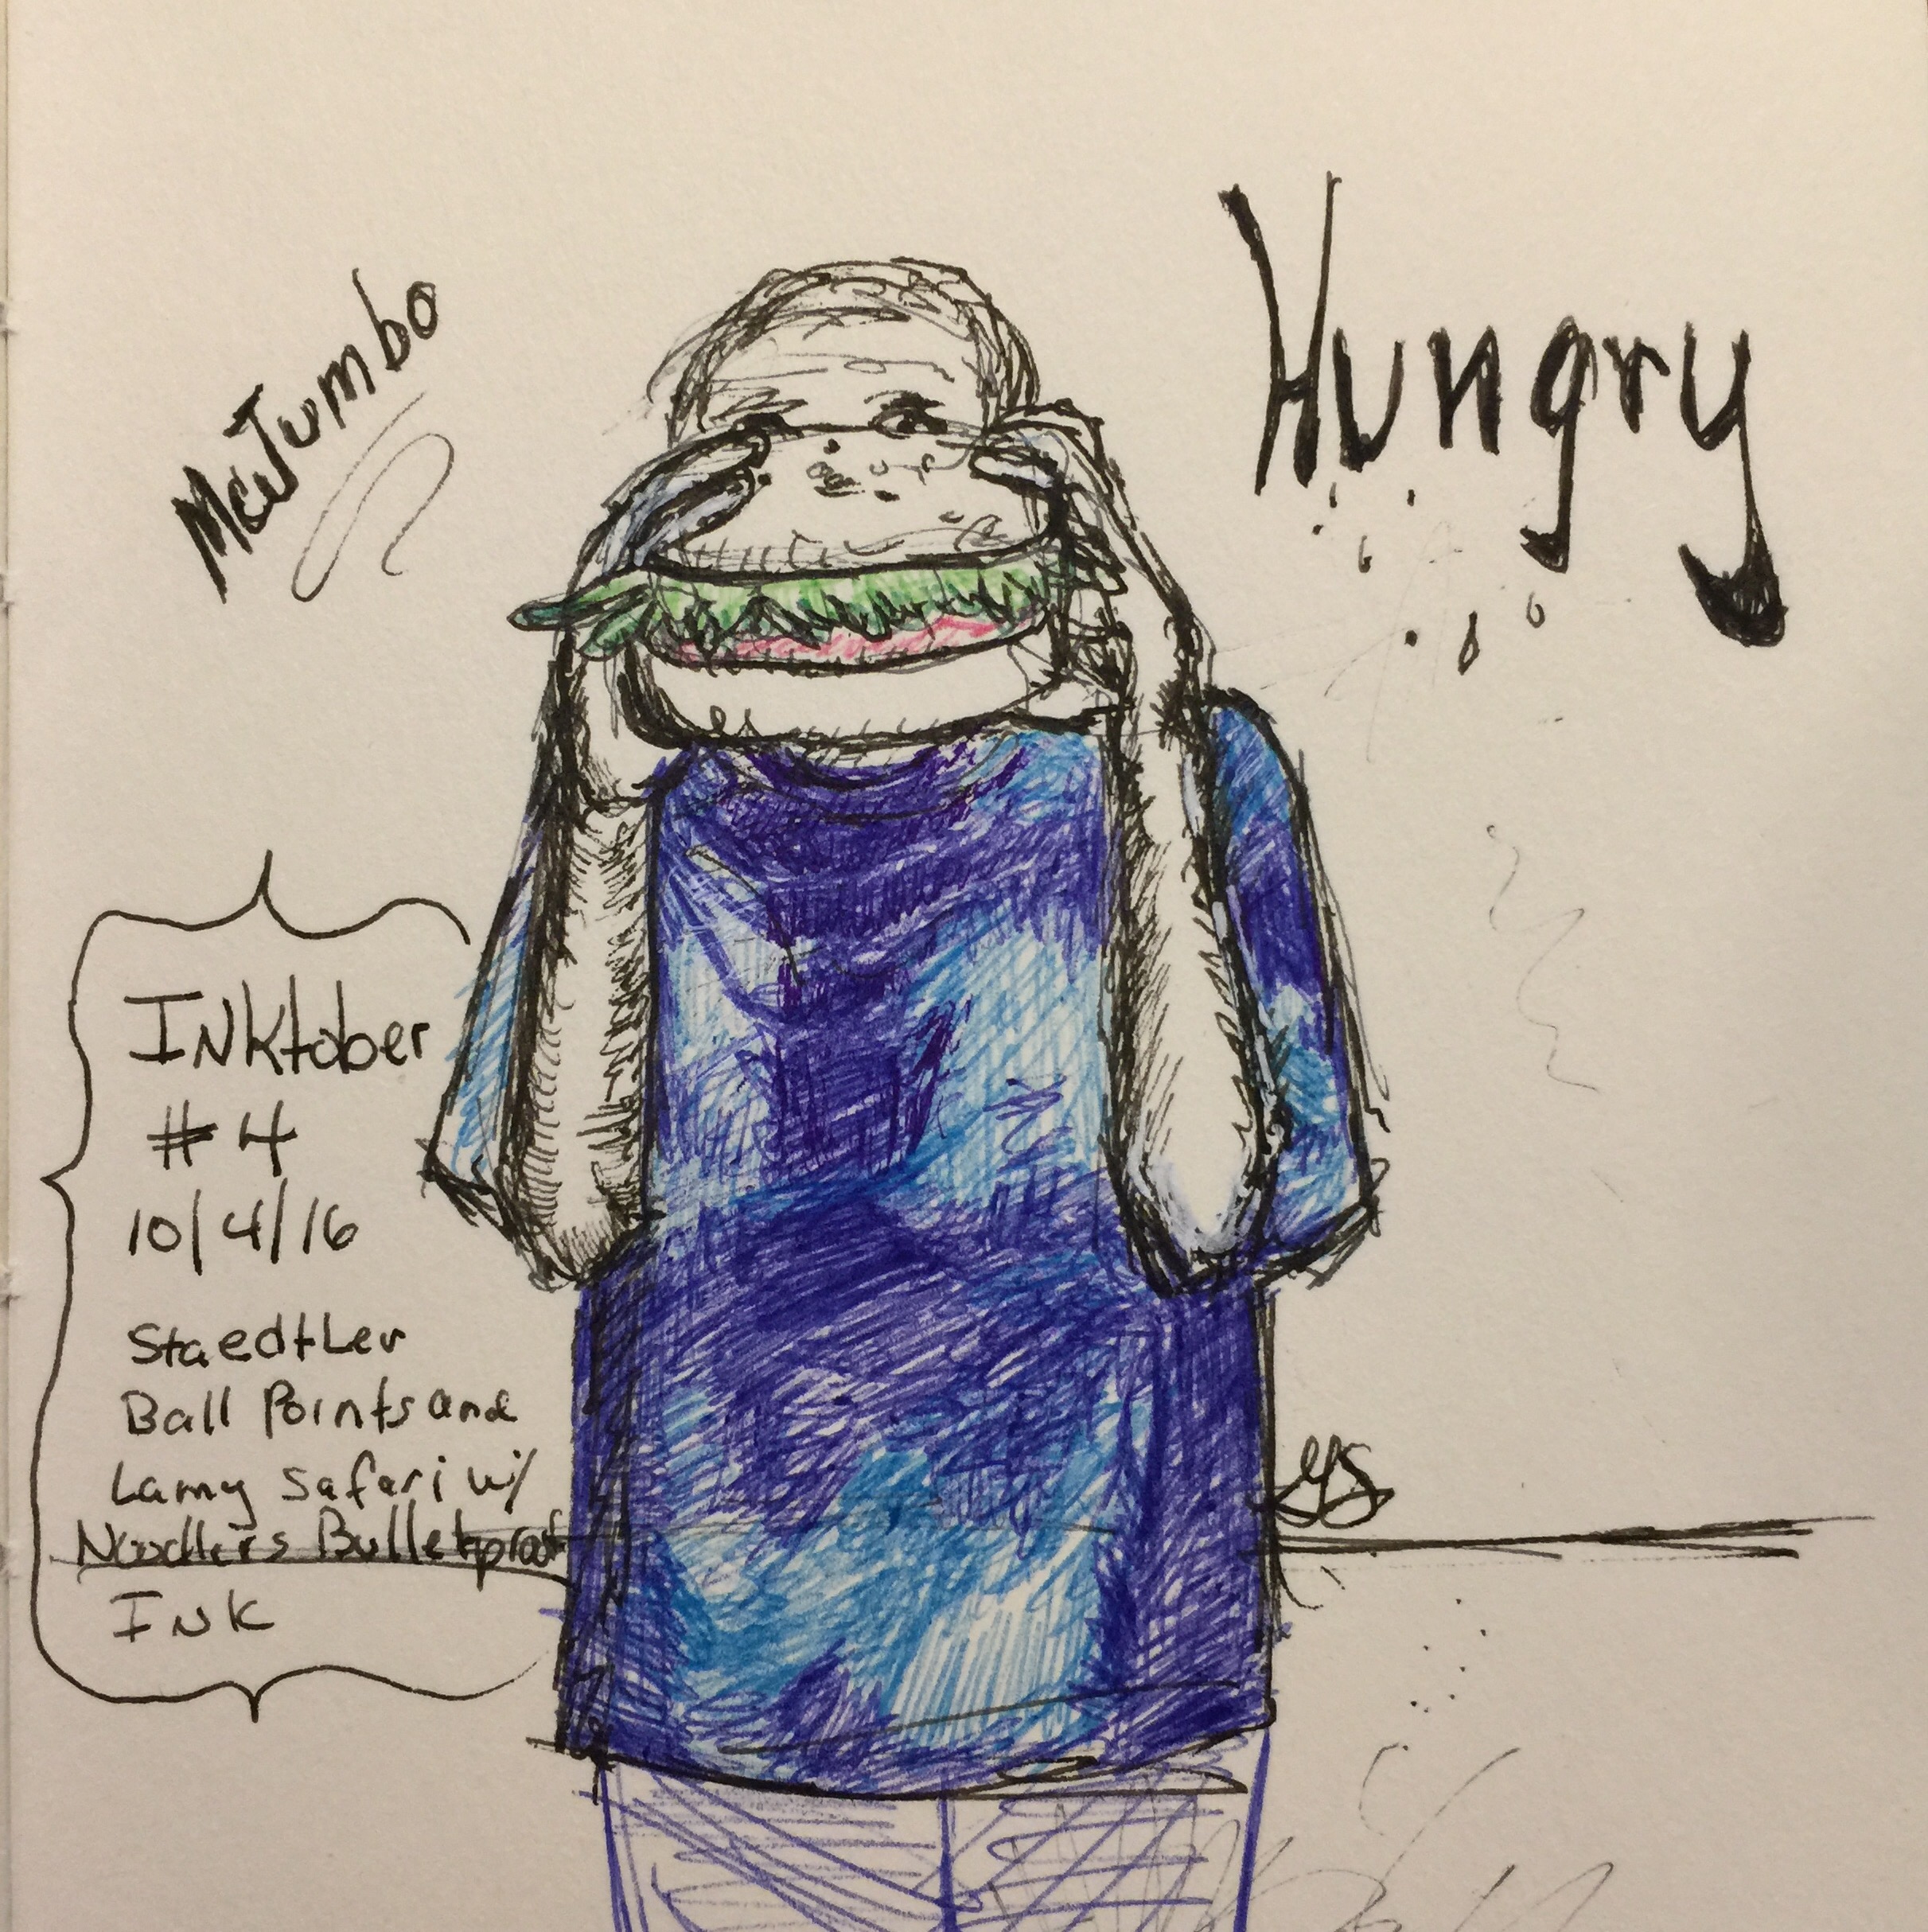 McJumbo
Hungry
Inktober
#4
10/4/16
Staedtler
Ball Points and
Lamy Safari w/
Noodlers Bulletproof
Ink